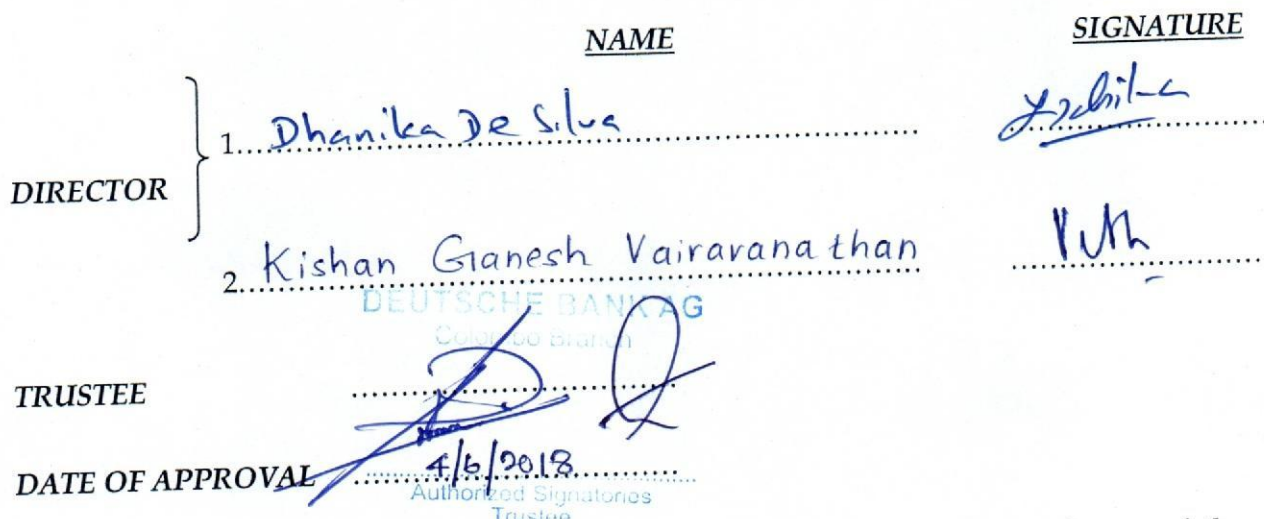 NAME SIGNATURE
1. Dhanika De Silva
DIRECTOR
2. Kishan Ganesh Vairavanathan
DEUTSCHE BANK AG
Colombo Branch
TRUSTEE
DATE OF APPROVAL 4/6/2018
Authorized Signatories
Trustee